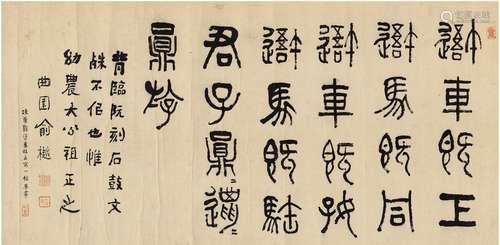 吾車既工
吾馬既同
吾車既好
吾馬既駐
君子員邋=
員斿
背臨阮刻石鼓文
殊不佀也惟
幼農大公祖正之
曲園俞樾